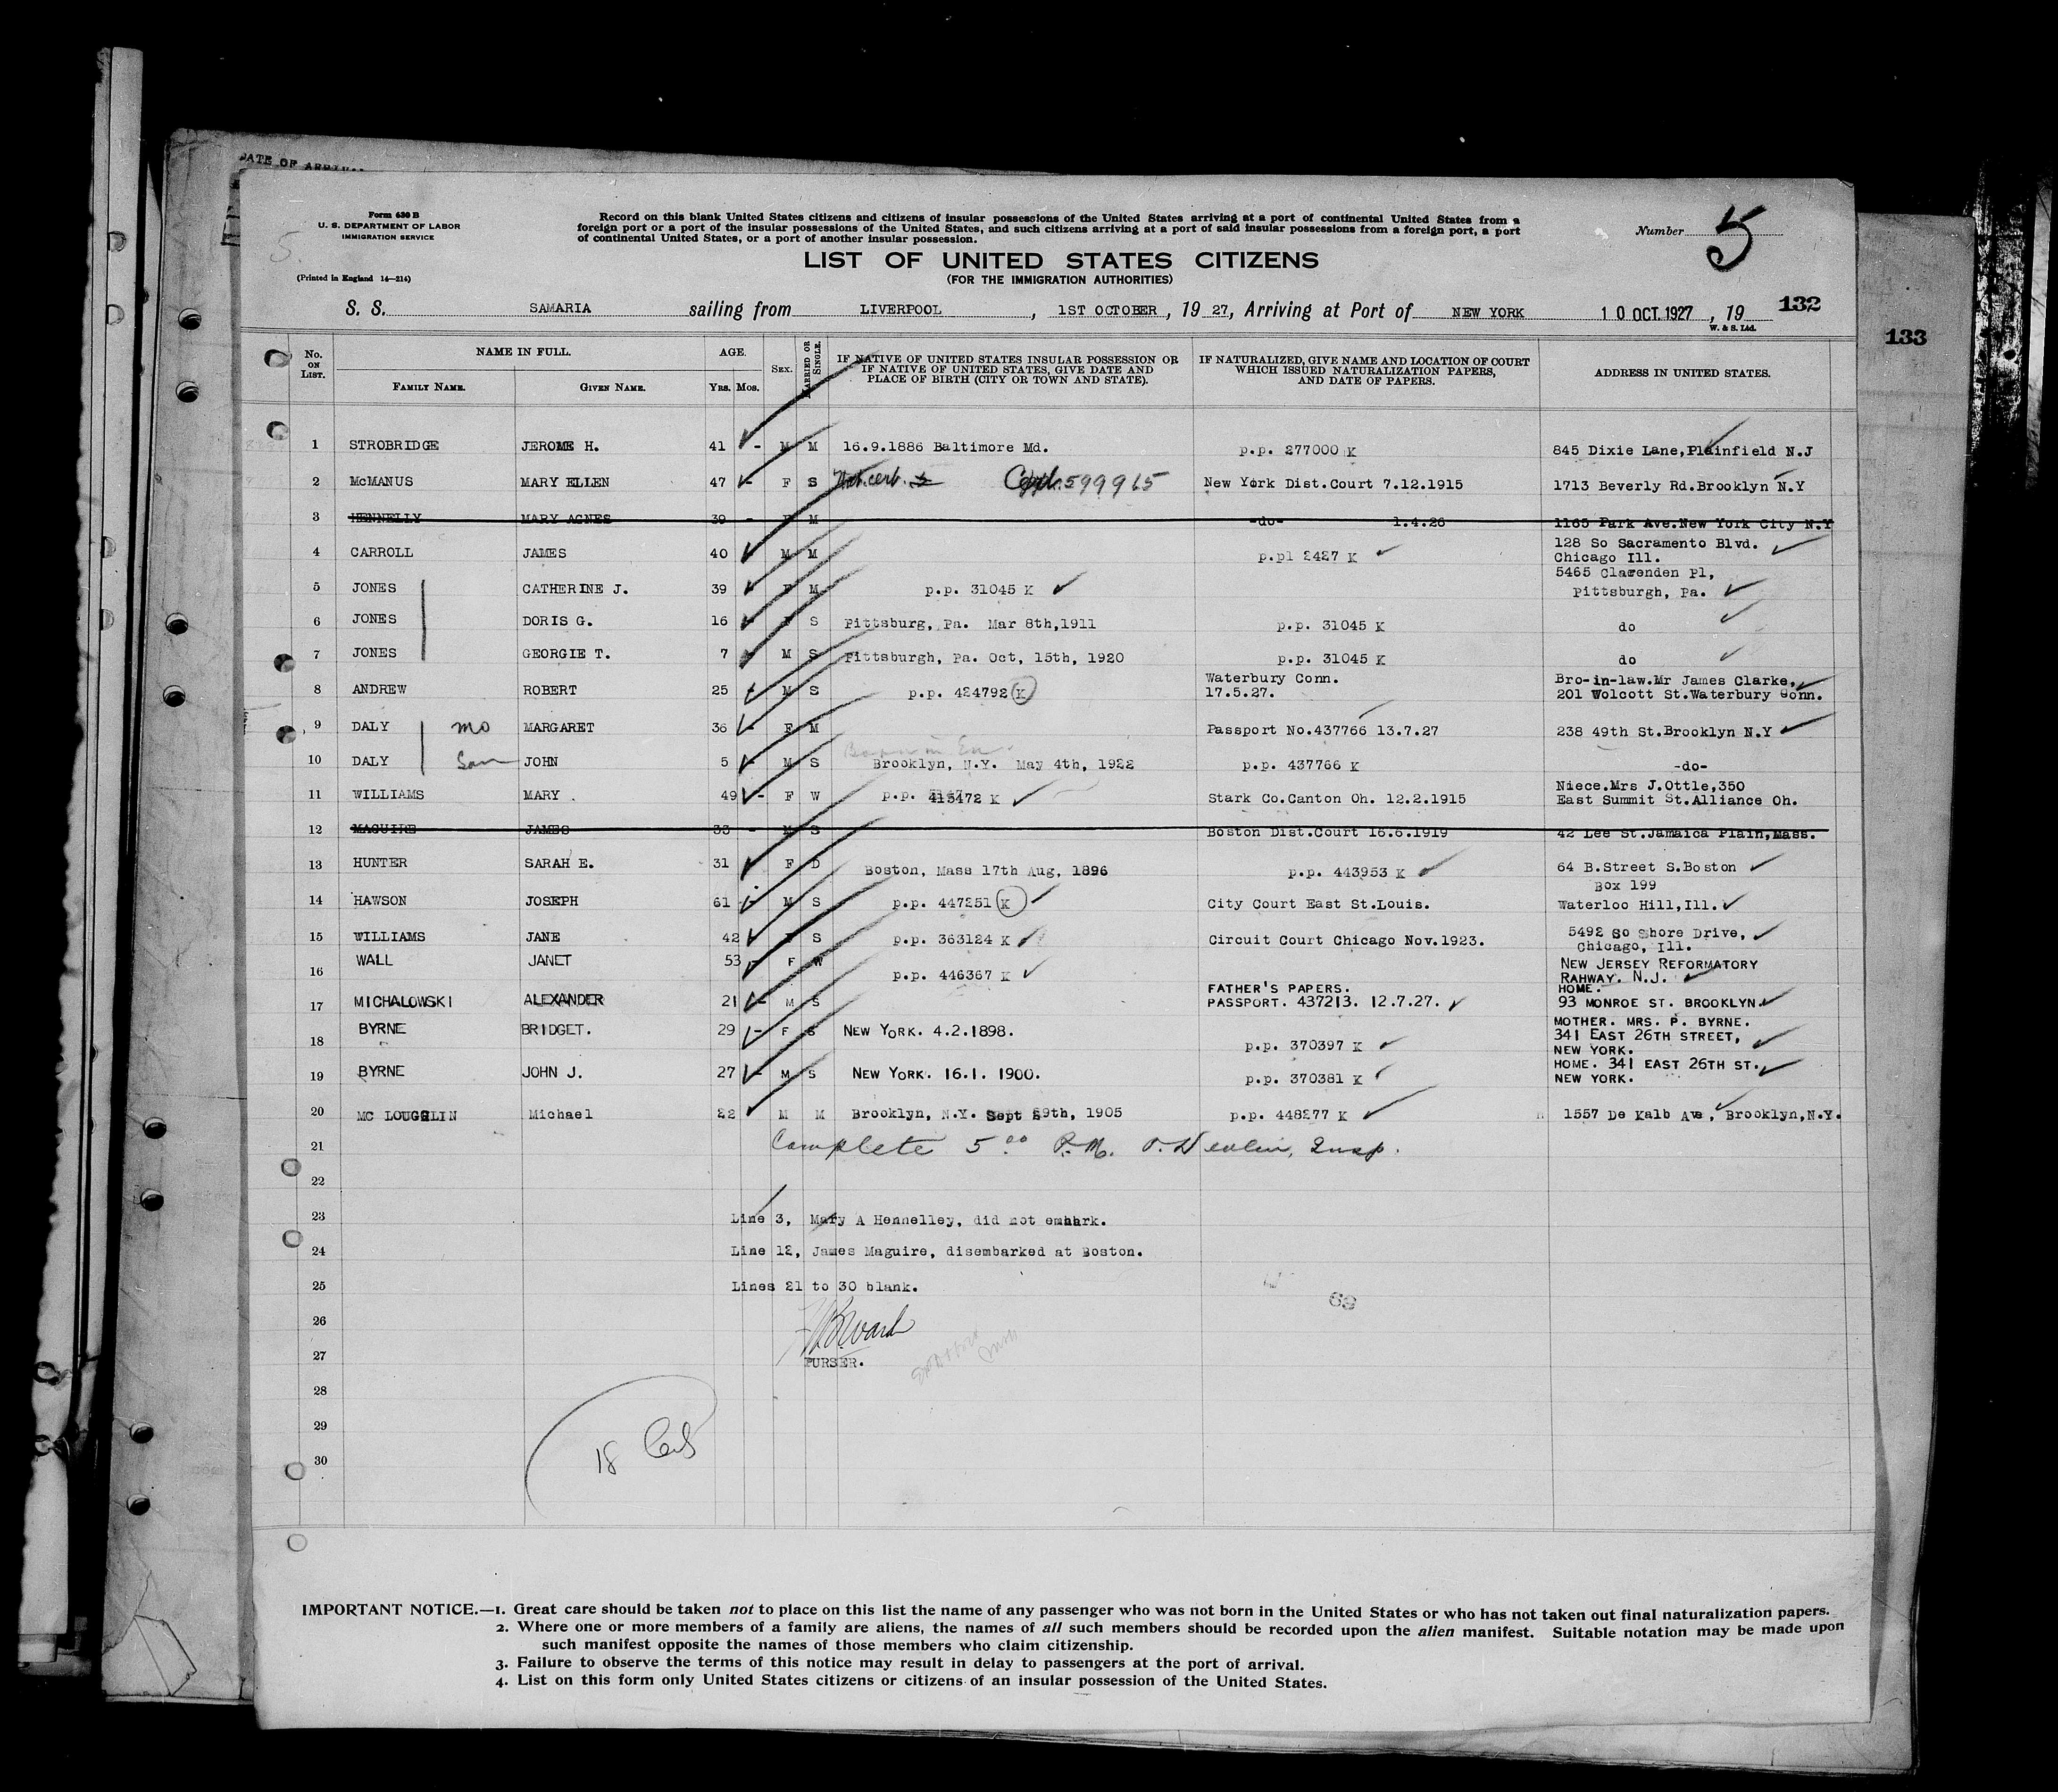 DATE OF ARRIVAL
Form 630 B
U. S. DEPARTMENT OF LABOR
IMMIGRATION SERVICE
(Printed in England 14—214)
5.
Record on this blank United States citizens and citizens of insular possessions of the United States arriving at a port of continental United States from a
foreign port or a port of the insular possessions of the United States, and such citizens arriving at a port of said insular possessions from a foreign port, a port
of continental United States, or a port of another insular possession.
Number 5
LIST OF UNITED STATES CITIZENS
(FOR THE IMMIGRATION AUTHORITIES)
S. S. SAMARIA sailing from LIVERPOOL, 1ST OCTOBER, 19 27, Arriving at Port of NEW YORK 10 OCT. 1927, 19 132
W. & S. Ltd.
133
No. ON LIST. NAME IN FULL. AGE. SEX. MARRIED OR SINGLE. IF NATIVE OF UNITED STATES INSULAR POSSESSION OR IF NATIVE OF UNITED STATES, GIVE DATE AND PLACE OF BIRTH (CITY OR TOWN AND STATE). IF NATURALIZED, GIVE NAME AND LOCATION OF COURT WHICH ISSUED NATURALIZATION PAPERS, AND DATE OF PAPERS. ADDRESS IN UNITED STATES.
FAMILY NAME. GIVEN NAME. YRS. MOS.
1 STROBRIDGE JEROME H. 41 - M M 16.9.1886 Baltimore Md. p.p. 277000 K 845 Dixie Lane,Plainfield N.J
2 McMANUS MARY ELLEN 47 - F S 599965 New York Dist.Court 7.12.1915 1713 Beverly Rd.Brooklyn N.Y
3 HENNELLY MARY AGNES 39 - F M -do- 1.4.26 1165 Park Ave.New York City N.Y
4 CARROLL JAMES 40 M M p.pl 2427 K 128 So Sacramento Blvd.
Chicago Ill.
5 JONES CATHERINE J. 39 F M p.p. 31045 K 5465 Clarenden Pl,
Pittsburgh, Pa.
6 JONES DORIS G. 16 F S Pittsburg, Pa. Mar 8th,1911 p.p. 31045 K do
7 JONES GEORGIE T. 7 M S Pittsburgh, Pa. Oct, 15th, 1920 p.p. 31045 K do
8 ANDREW ROBERT 25 M S p.p. 424792 K Waterbury Conn.
17.5.27. Bro-in-law.Mr James Clarke,
201 Wolcott St.Waterbury Conn.
9 DALY mo MARGARET 36 - F M Passport No.437766 13.7.27 238 49th St.Brooklyn N.Y
10 DALY Son JOHN 5 - M S Brooklyn, N.Y. May 4th, 1922 p.p. 437766 K -do-
11 WILLIAMS MARY . 49 - F W p.p. 415472 K Stark Co.Canton Oh. 12.2.1915 Niece.Mrs J.Ottle,350
East Summit St.Alliance Oh.
12 MAGUIRE JAMES 33 - M S Boston Dist.Court 16.6.1919 42 Lee St.Jamaica Plain,Mass.
13 HUNTER SARAH E. 31 F D Boston, Mass 17th Aug, 1896 p.p. 443953 K 64 B.Street S.Boston
14 HAWSON JOSEPH 61 - M S p.p. 447251 K City Court East St.Louis. Box 199
Waterloo Hill,Ill.
15 WILLIAMS JANE 42 F S p.p. 363124 K Circuit Court Chicago Nov.1923. 5492 So Shore Drive,
Chicago, Ill.
16 WALL JANET 53 - F W p.p. 446367 K NEW JERSEY REFORMATORY
RAHWAY. N.J.
17 MICHALOWSKI ALEXANDER 21 - M S FATHER'S PAPERS.
PASSPORT. 437213. 12.7.27. HOME.
93 MONROE ST. BROOKLYN.
18 BYRNE BRIDGET. 29 - F S NEW YORK. 4.2.1898. p.p. 370397 K MOTHER. MRS. P. BYRNE.
341 EAST 26TH STREET,
NEW YORK.
19 BYRNE JOHN J. 27 - M S NEW YORK. 16.1. 1900. p.p. 370381 K HOME. 341 EAST 26TH ST.
NEW YORK.
20 MC LOUGHLIN Michael 22 M M Brooklyn, N.Y. Sept 29th, 1905 p.p. 448277 K 1557 De Kalb Ave, Brooklyn,N.Y.
21 Complete 5 00 P.M. Insp.
22
23 Line 3, Mary A Hennelley, did not embark.
24 Line 12, James Maguire, disembarked at Boston.
25 Lines 21 to 30 blank.
69
26
27 PURSER.
28
29 18
30
IMPORTANT NOTICE.—1. Great care should be taken not to place on this list the name of any passenger who was not born in the United States or who has not taken out final naturalization papers.
2. Where one or more members of a family are aliens, the names of all such members should be recorded upon the alien manifest. Suitable notation may be made upon
such manifest opposite the names of those members who claim citizenship.
3. Failure to observe the terms of this notice may result in delay to passengers at the port of arrival.
4. List on this form only United States citizens or citizens of an insular possession of the United States.